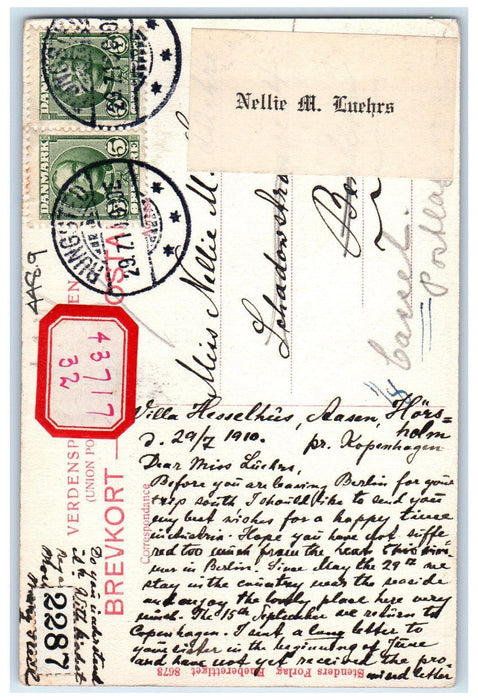 Nellie M. Luehrs
DANMARK
5
ØRE
DANMARK
5
ØRE
RUNGSTED
29.7.10
RUNGSTED
29.7.1
4489
43717
32
VERDENSP
(UNION PO
BREVKORT
POSTAL
Correspondance
Miss Nellie M.
Schadowstra
Cassel.
Postla
Villa Hesselhüs, Aasen, Hörs-
holm
D. 29/7 1910. pr. Kopenhagen
Dear Miss Lüehrs,
Before you are leaving Berlin for your
trip south I should like to send you
my best wishes for a happy time
in Austria. Hope you have not suffe-
red too much from the heat this sum-
mer in Berlin. Since May the 29th we
stay in the country near the seaside
and enjoy the lovely place here very
much. The 15th September we return to
Copenhagen. I sent a long letter to
your sister in the beginning of June
and have not yet received the pro-
mised letter
Do you understand
it is
2287
Stenders Forlag Eneberettiget 8673